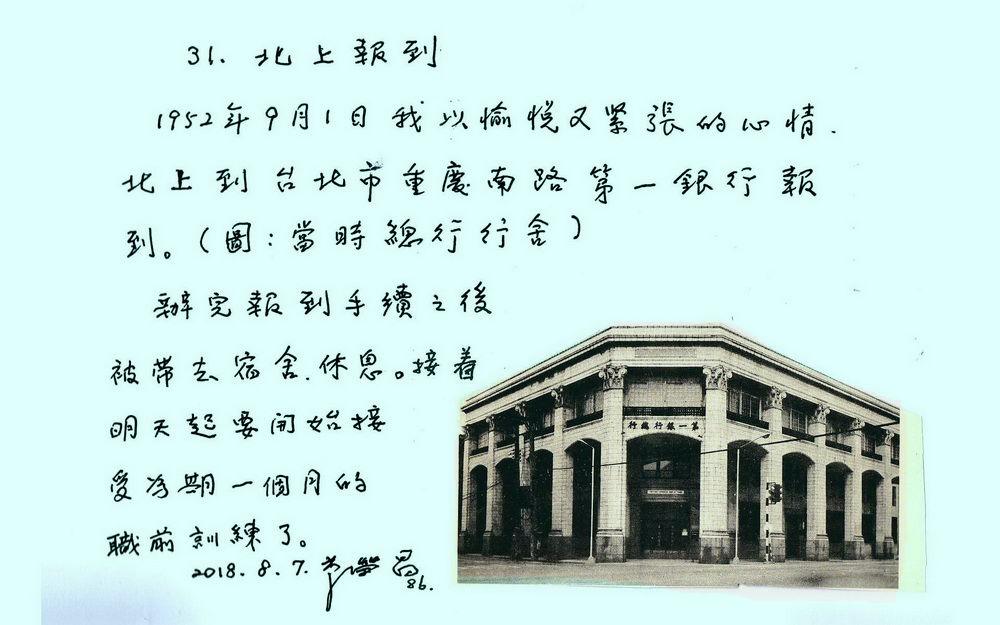 31. 北上報到
1952年9月1日我以愉悅又緊張的心情.
北上到台北市重慶南路第一銀行報
到。(圖:當時總行行舍)
辦完報到手續之後
被帶去宿舍.休息。接着
明天起要開始接
受為期一個月的
職前訓練了。
2018.8.7.
86.
行總行銀一第